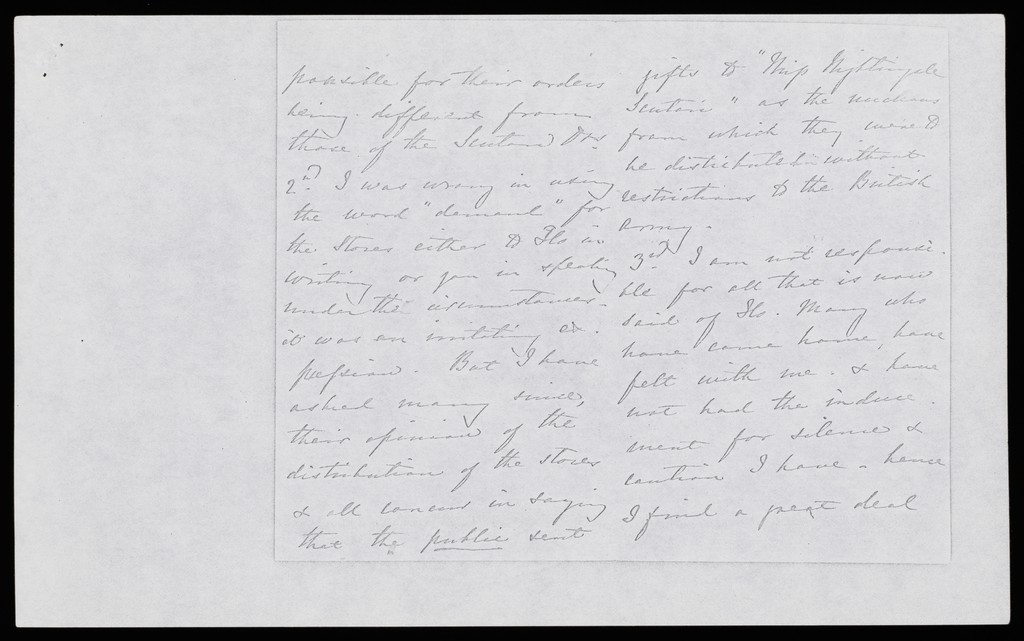 ponsible for their orders
being different from
those of the Scutari Drs.
2nd. I was wrong in using
the word "demand" for
the Stores either to Flo in
writing or you in speaking
under the circumstances -
it was an irritating ex-
pression. But I have
asked many since,
their opinion of the
distribution of the stores
& all concur in saying
that the public sent
gifts to "Miss Nightingale
Scutari" as the medium
from which they were to
be distributed without
restrictions to the British
Army.
3rd. I am not responsi-
ble for all that is now
said of Flo. Many who
have come home, have
felt with me - & have
not had the induce-
ment for silence &
caution I have - hence
I find a great deal